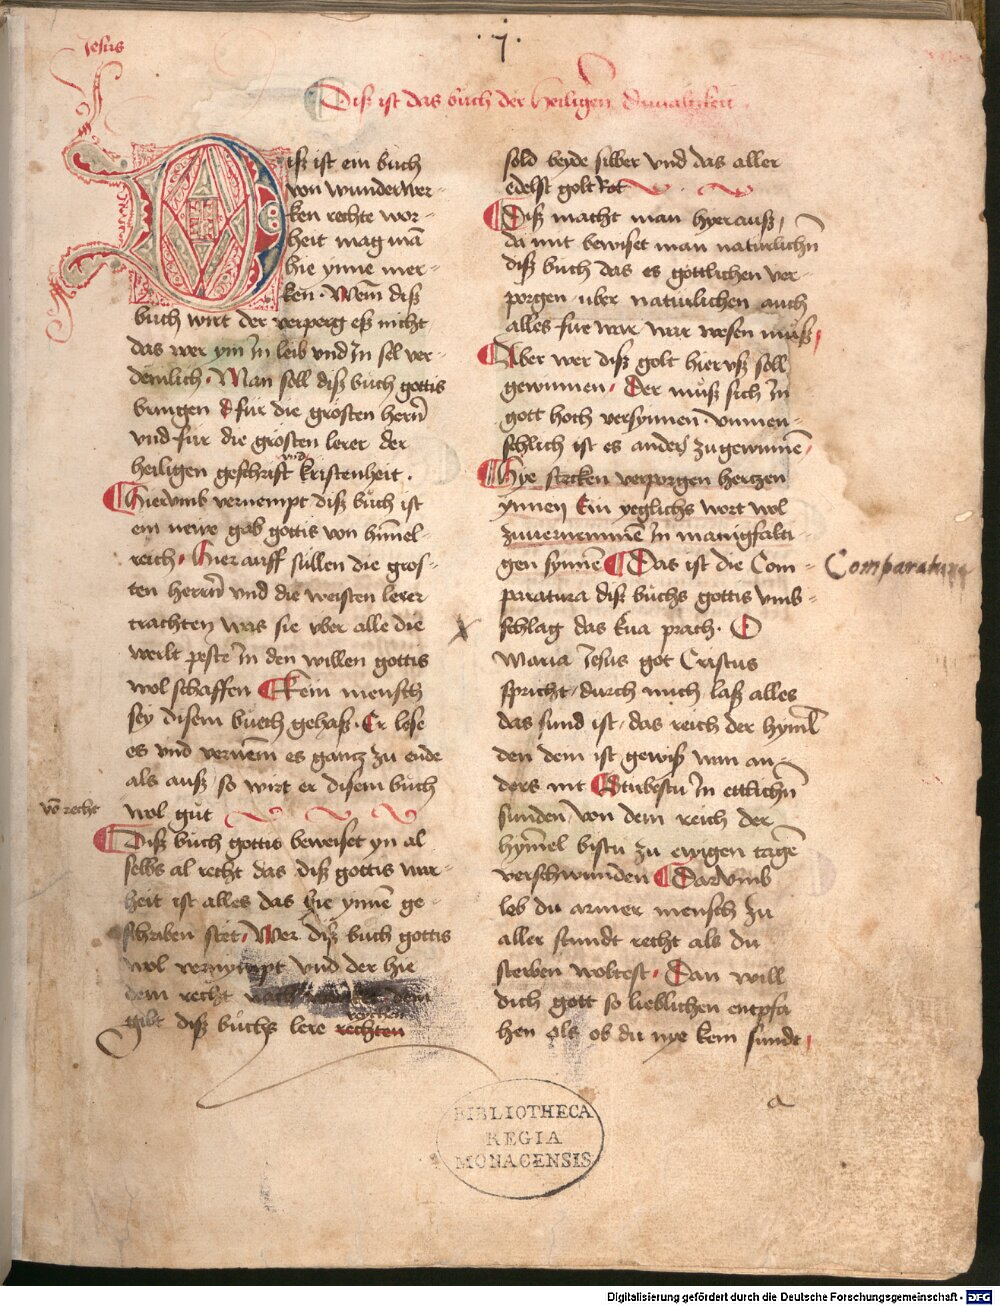 Jesus
.7.
Diß ist das buch der heiligen
Diß ist ein buch
von wunderwer-
ken rechte wor-
heit mag mā
hie ynne mer-
ken. Wem̄ diß
buch wirt der verperg eß nicht
das wer ym in leib vnd in sel ver-
demlich. Man soll diß buch gottis
bringen für die grösten herrn̄
vnd für die grösten lerer der
heiligen geschrift vnd kristenheit.
Hierumb vernempt diß buch ist
ein newe gab gottis von himel-
reich. Hierauff süllen die gros-
ten herrn̄ vnd die weisten lerer
trachten was sie vber alle die
werlt peste in den willen gottis
wol schaffen Kein mensch
sey disem buech gehaß. Er lese
es vnd vernem̄ es gantz zu ende
als auß so wirt er disem buch
wol gut
vō recht
Diß buch gottis beweiset yn al
selbs al recht das diß gottis war-
heit ist alles das hie ynnē ge-
schriben stet. Wer diß buch gottis
wol vernympt vnd der hie
dem recht nach dem
gibt diß buchs lere rechten
sold beyde silber vnd das aller
edelst golt Rot
Diß macht man hyerauß,
da mit beweiset man naturlichn̄
diß buch das es gottlichen ver-
porgen vber naturlichen auch
alles fürwar war wesen muß,
Aber wer diß golt hieruß soll
gewinnen. Der muß sich in
gott hoch versynnen. vnmen-
schlich ist es anders zugewinnē
Hye stecken verporgen hertzen
ynnen Ein yeglichs wort wol
zuvernemmē in manigfalti-
gen synnē Das ist die Com-
paratura diß buchs gottis vmb-
schlag das kua prach. O
Comparatura
Maria Jesus got Cristus
spricht, durch mich laß alles
das sund ist, das reich der hyml
den dem ist gewiß vnn an-
ders nit Stirbestu in ettlichn̄
sunden, von dem reich der
hymel bistu zu ewigen tagē
verschwunden Darumb
leb du armer mensch zu
aller stundt recht als du
sterben woltest. Dan will
dich gott so lieblichen entpfa
hen als ob du nye kein sundt,
a
BIBLIOTHECA
REGIA
MONACENSIS
Digitalisierung gefördert durch die Deutsche Forschungsgemeinschaft - DFG